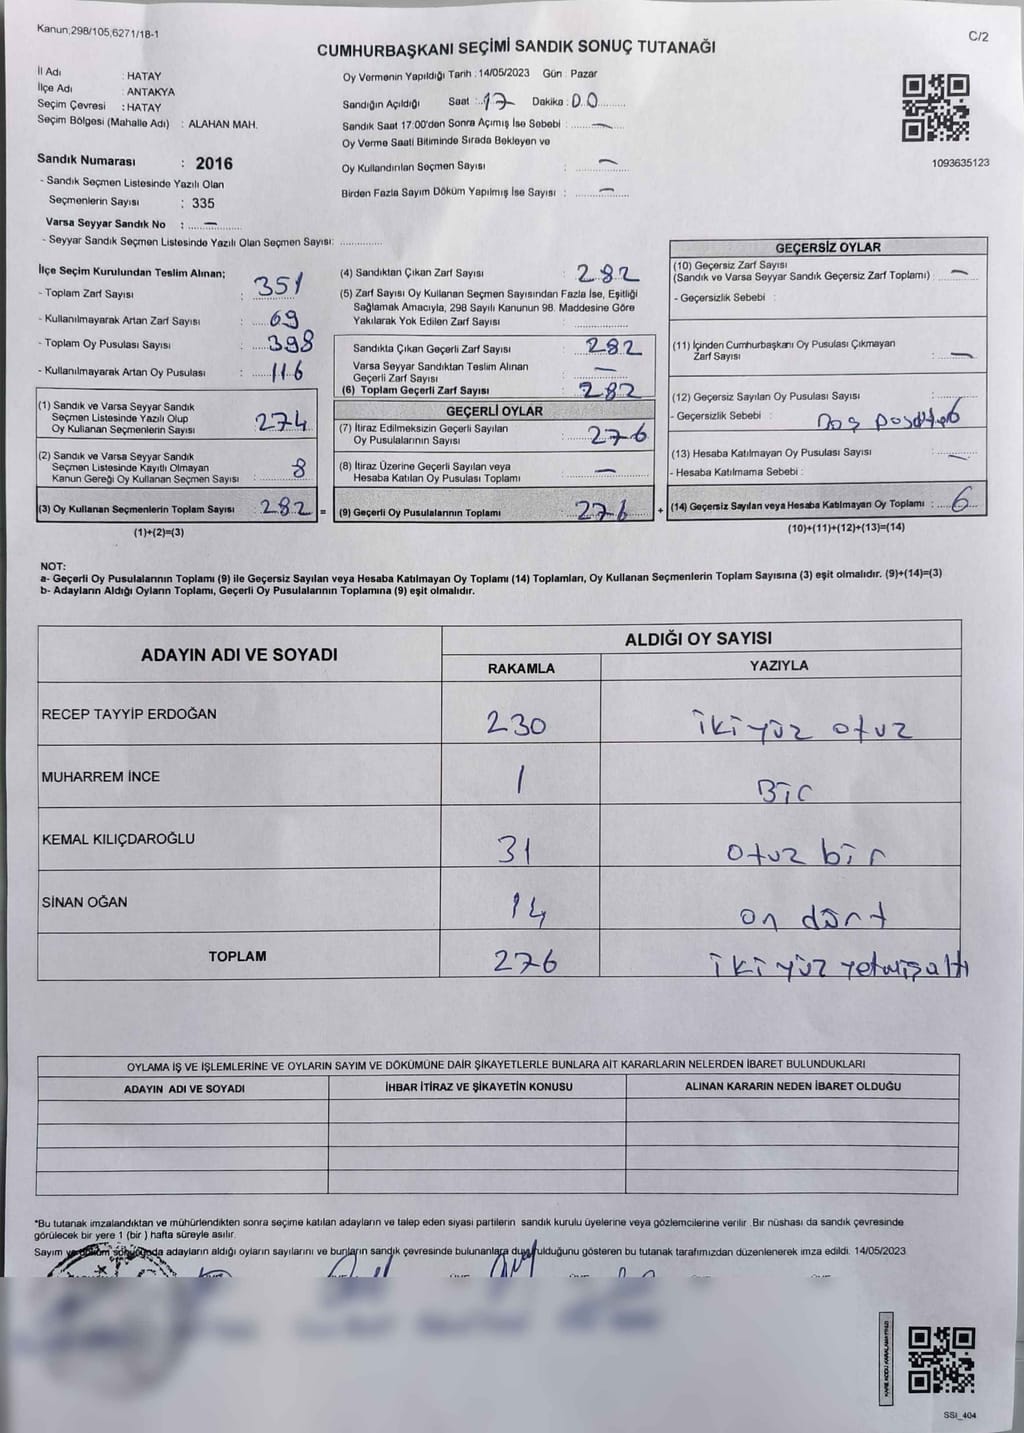 Kanun,298/105,6271/18-1
C/2
CUMHURBAŞKANI SEÇİMİ SANDIK SONUÇ TUTANAĞI
İl Adı : HATAY
İlçe Adı : ANTAKYA
Seçim Çevresi : HATAY
Seçim Bölgesi (Mahalle Adı) : ALAHAN MAH.
Sandık Numarası : 2016
- Sandık Seçmen Listesinde Yazılı Olan
Seçmenlerin Sayısı : 335
Varsa Seyyar Sandık No : —
- Seyyar Sandık Seçmen Listesinde Yazılı Olan Seçmen Sayısı: ............
Oy Vermenin Yapıldığı Tarih : 14/05/2023 Gün : Pazar
Sandığın Açıldığı Saat : 17 Dakika : 00
Sandık Saat 17:00'den Sonra Açımış İse Sebebi : —
Oy Verme Saati Bitiminde Sırada Bekleyen ve
Oy Kullandırılan Seçmen Sayısı : —
Birden Fazla Sayım Döküm Yapılmış İse Sayısı : —
1093635123
İlçe Seçim Kurulundan Teslim Alınan;
- Toplam Zarf Sayısı : 351
- Kullanılmayarak Artan Zarf Sayısı : 69
- Toplam Oy Pusulası Sayısı : 398
- Kullanılmayarak Artan Oy Pusulası : 116
(1) Sandık ve Varsa Seyyar Sandık
Seçmen Listesinde Yazılı Olup
Oy Kullanan Seçmenlerin Sayısı : 274
(2) Sandık ve Varsa Seyyar Sandık
Seçmen Listesinde Kayıtlı Olmayan
Kanun Gereği Oy Kullanan Seçmen Sayısı : 8
(3) Oy Kullanan Seçmenlerin Toplam Sayısı : 282 =
(1)+(2)=(3)
(4) Sandıktan Çıkan Zarf Sayısı : 282
(5) Zarf Sayısı Oy Kullanan Seçmen Sayısından Fazla İse, Eşitliği
Sağlamak Amacıyla, 298 Sayılı Kanunun 98. Maddesine Göre
Yakılarak Yok Edilen Zarf Sayısı :
Sandıkta Çıkan Geçerli Zarf Sayısı : 282
Varsa Seyyar Sandıktan Teslim Alınan
Geçerli Zarf Sayısı : —
(6) Toplam Geçerli Zarf Sayısı : 282
GEÇERLİ OYLAR
(7) İtiraz Edilmeksizin Geçerli Sayılan
Oy Pusulalarının Sayısı : 276
(8) İtiraz Üzerine Geçerli Sayılan veya
Hesaba Katılan Oy Pusulası Toplamı : —
(9) Geçerli Oy Pusulalarının Toplamı : 276 +
GEÇERSİZ OYLAR
(10) Geçersiz Zarf Sayısı
(Sandık ve Varsa Seyyar Sandık Geçersiz Zarf Toplamı) : —
- Geçersizlik Sebebi :
(11) İçinden Cumhurbaşkanı Oy Pusulası Çıkmayan
Zarf Sayısı : —
(12) Geçersiz Sayılan Oy Pusulası Sayısı :
- Geçersizlik Sebebi : 6
(13) Hesaba Katılmayan Oy Pusulası Sayısı : —
- Hesaba Katılmama Sebebi :
(14) Geçersiz Sayılan veya Hesaba Katılmayan Oy Toplamı : 6
(10)+(11)+(12)+(13)=(14)
NOT:
a- Geçerli Oy Pusulalarının Toplamı (9) ile Geçersiz Sayılan veya Hesaba Katılmayan Oy Toplamı (14) Toplamları, Oy Kullanan Seçmenlerin Toplam Sayısına (3) eşit olmalıdır. (9)+(14)=(3)
b- Adayların Aldığı Oyların Toplamı, Geçerli Oy Pusulalarının Toplamına (9) eşit olmalıdır.
ADAYIN ADI VE SOYADI
ALDIĞI OY SAYISI
RAKAMLA YAZIYLA
RECEP TAYYİP ERDOĞAN 230 iki yüz otuz
MUHARREM İNCE 1 Bir
KEMAL KILIÇDAROĞLU 31 otuz bir
SİNAN OĞAN 14 on dört
TOPLAM 276 iki yüz yetmiş altı
OYLAMA İŞ VE İŞLEMLERİNE VE OYLARIN SAYIM VE DÖKÜMÜNE DAİR ŞİKAYETLERLE BUNLARA AİT KARARLARIN NELERDEN İBARET BULUNDUKLARI
ADAYIN ADI VE SOYADI İHBAR İTİRAZ VE ŞİKAYETİN KONUSU ALINAN KARARIN NEDEN İBARET OLDUĞU
*Bu tutanak imzalandıktan ve mühürlendikten sonra seçime katılan adayların ve talep eden siyasi partilerin sandık kurulu üyelerine veya gözlemcilerine verilir. Bir nüshası da sandık çevresinde
görülecek bir yere 1 (bir ) hafta süreyle asılır.
Sayım adayların aldığı oyların sayılarını ve bunların sandık çevresinde bulunanlara duyurulduğunu gösteren bu tutanak tarafımızdan düzenlenerek imza edildi. 14/05/2023
SSİ_404